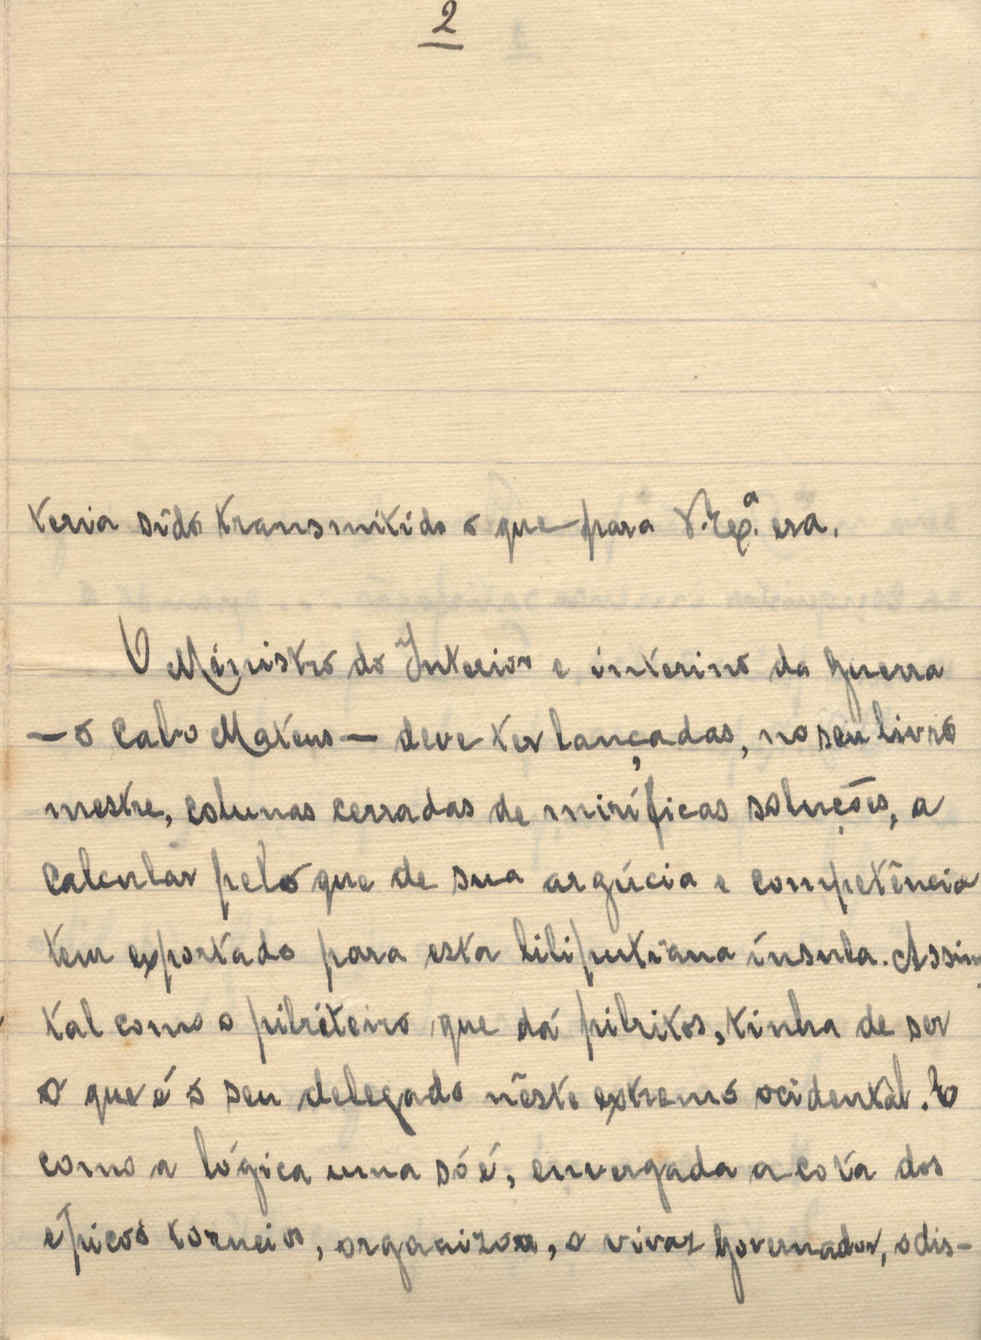 2
teria sido transmitido o que para V. Exª. era.
O Ministro do Interior e interino da Guerra
— o Calvo Mateus — deve ter lançadas, no seu livro
mestre, colunas cerradas de miríficas soluções, a
calcular pelo que de sua argúcia e competência
tem exportado para esta liliputiana ínsula. Assim
tal como o pilriteiro que dá pilritos, tinha de ser
o que é o seu delegado nêste extremo ocidental. E
como a lógica uma só é, envergada a cota dos
épicos torneios, organizou, o vivaz Governador, o dis-